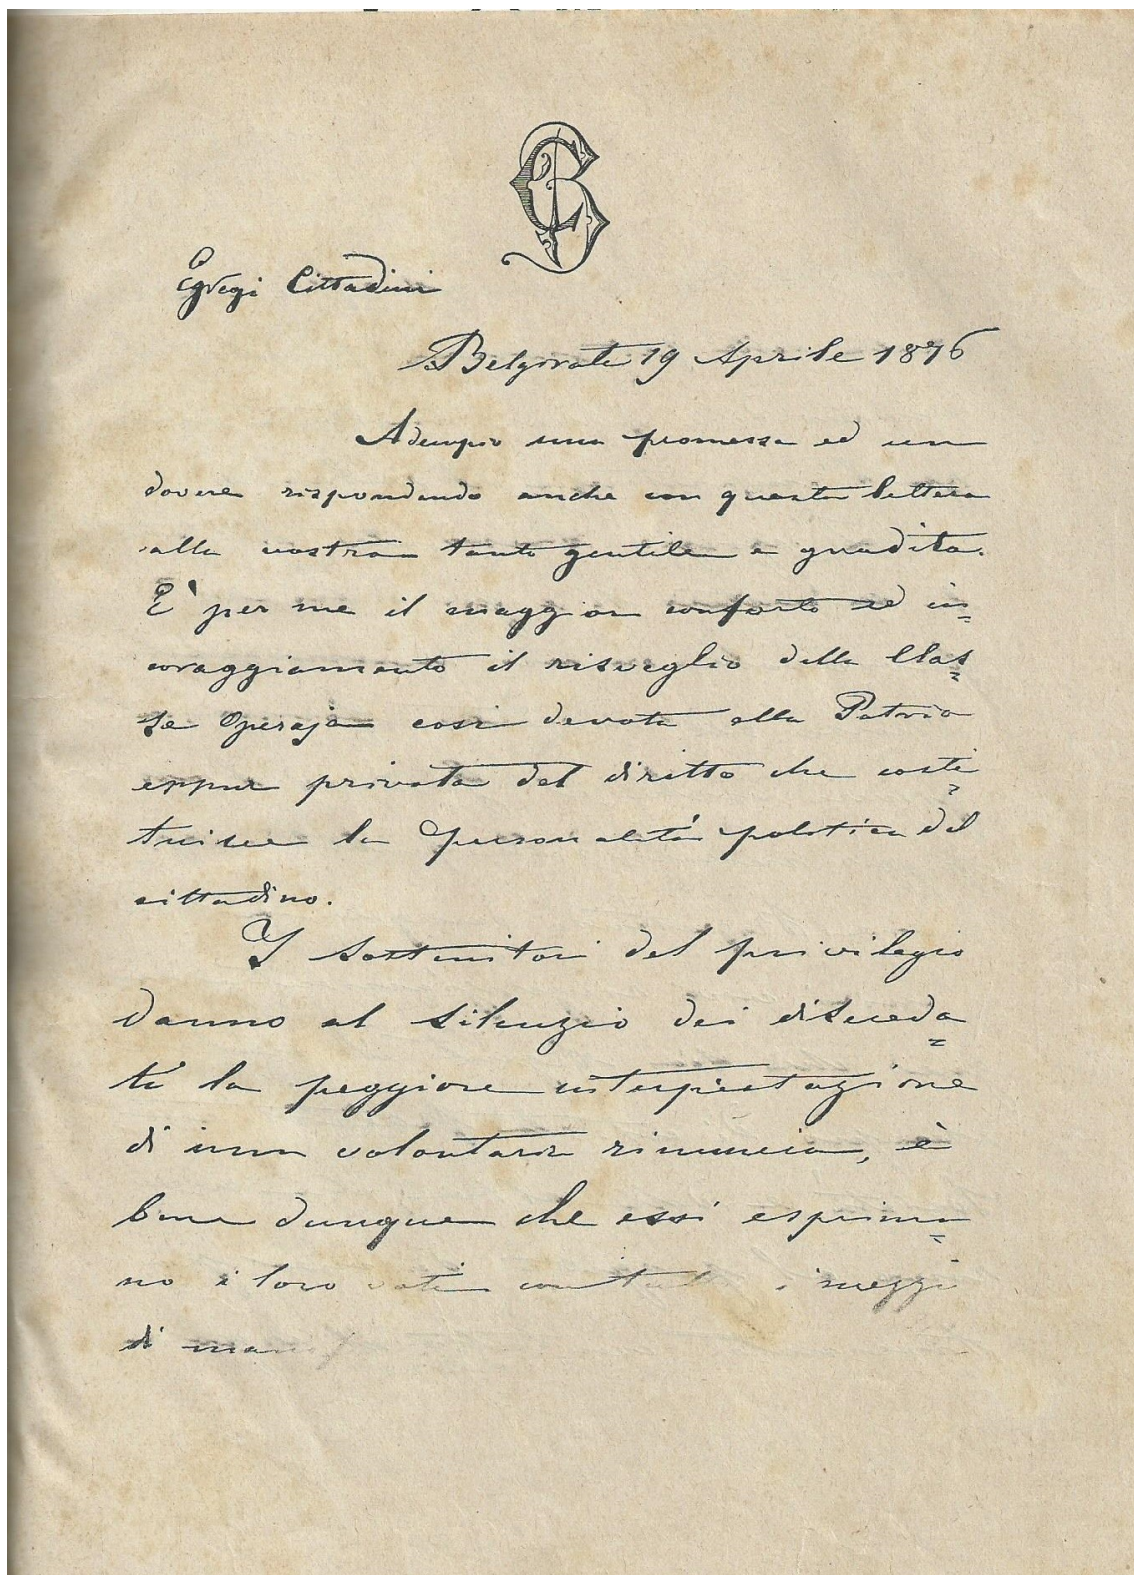 Egregi Cittadini
Belgirate 19 Aprile 1876
Adempio una promessa ed un
dovere rispondendo anche con questa lettera
alla vostra tanto gentile e gradita.
E' per me il maggior conforto ed in=
coraggiamento il risveglio della Clas=
se Operaja così devota alla Patria
eppur privata del diritto che costi=
tuisce la personalità politica del
cittadino.
I sostenitori del privilegio
danno al silenzio dei disereda=
ti la peggiore interpretazione
di una volontaria rinuncia, è
bene dunque che essi esprima=
no i loro voti con i mezzi
di